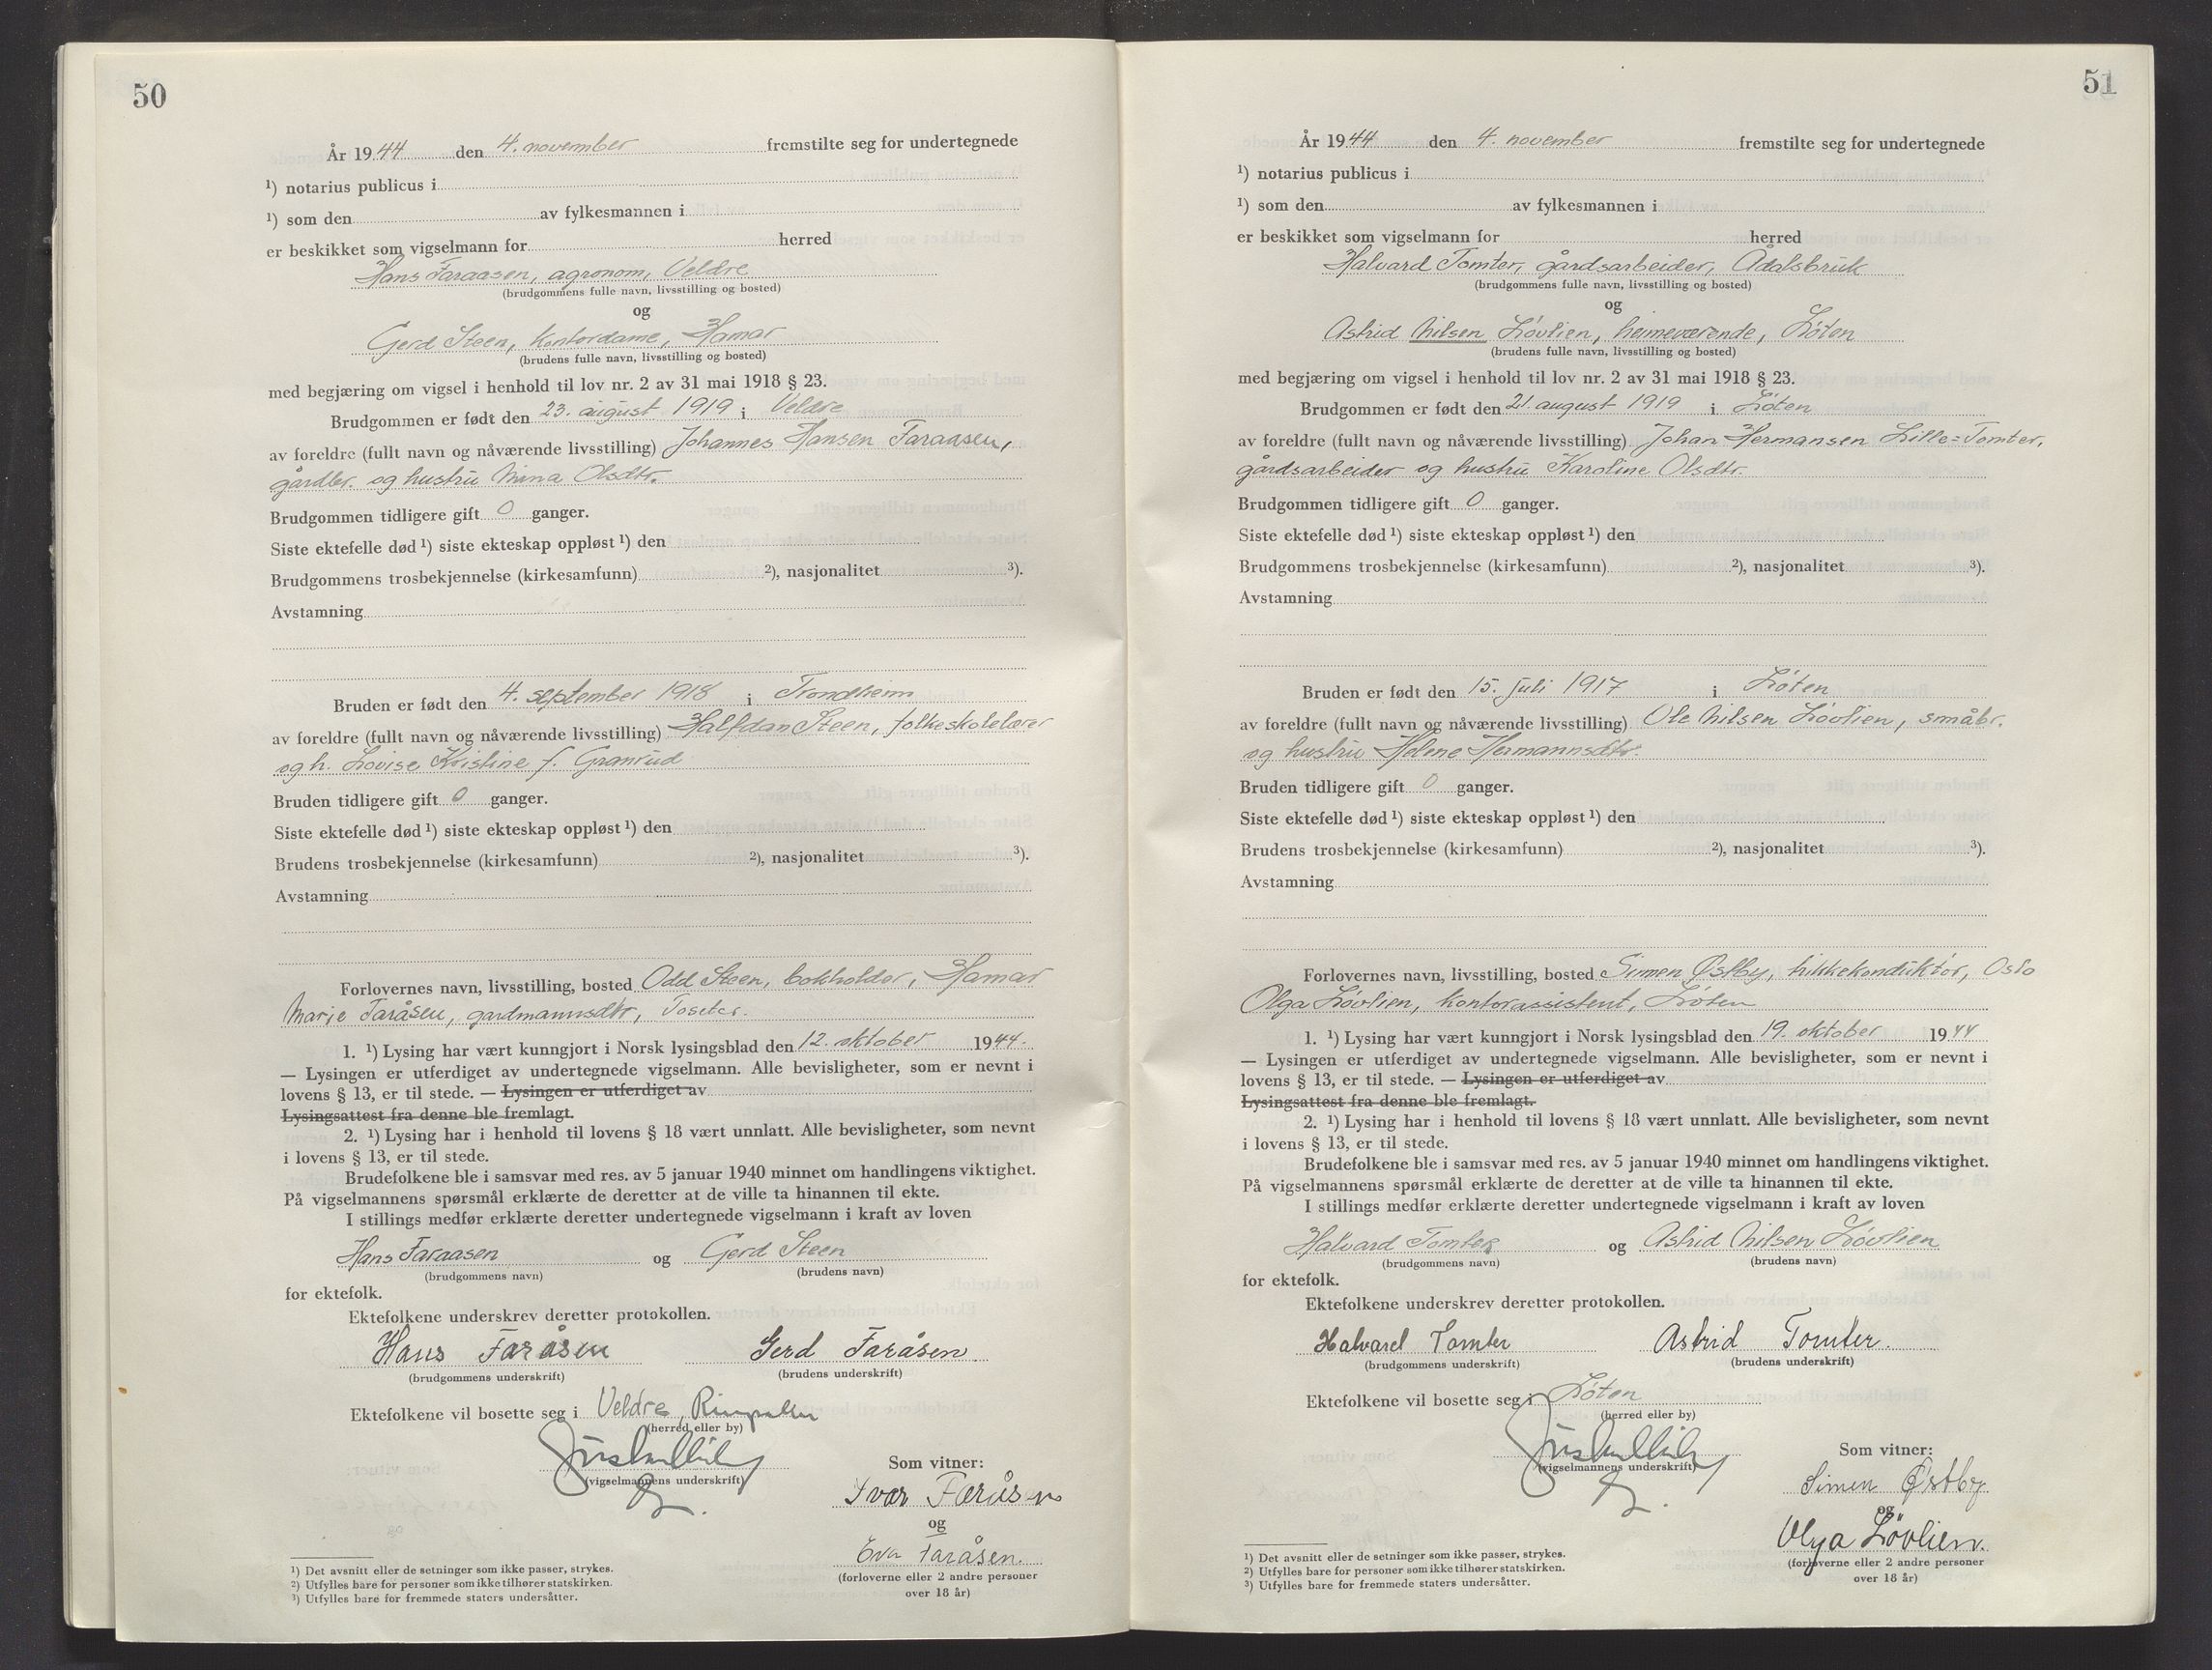 50
År 1944 den 4. november fremstilte seg for undertegnede
¹) notarius publicus i
¹) som den av fylkesmannen i
er beskikket som vigselmann for herred
Hans Faraasen, agronom, Veldre
(brudgommens fulle navn, livsstilling og bosted)
og
Gerd Steen, kontordame, Hamar
(brudens fulle navn, livsstilling og bosted)
med begjæring om vigsel i henhold til lov nr. 2 av 31 mai 1918 § 23.
Brudgommen er født den 23. august 1919 i Veldre
av foreldre (fullt navn og nåværende livsstilling) Johannes Hansen Faraasen,
gårdbr. og hustru Nina Olsdtr.
Brudgommen tidligere gift 0 ganger.
Siste ektefelle død ¹) siste ekteskap oppløst ¹) den
Brudgommens trosbekjennelse (kirkesamfunn) ²), nasjonalitet ³).
Avstamning
Bruden er født den 4. september 1918 i Trondheim
av foreldre (fullt navn og nåværende livsstilling) Halfdan Steen, folkeskolelærer
og h. Lovise Kristine f. Granrud
Bruden tidligere gift 0 ganger.
Siste ektefelle død ¹) siste ekteskap oppløst ¹) den
Brudens trosbekjennelse (kirkesamfunn) ²), nasjonalitet ³).
Avstamning
Forlovernes navn, livsstilling, bosted Odd Steen, bokholder, Hamar
Marie Faråsen, gardmannsdtr,
1. ¹) Lysing har vært kunngjort i Norsk lysingsblad den 12. oktober 1944.
— Lysingen er utferdiget av undertegnede vigselmann. Alle bevisligheter, som er nevnt i
lovens § 13, er til stede. — Lysingen er utferdiget av
Lysingsattest fra denne ble fremlagt.
2. ¹) Lysing har i henhold til lovens § 18 vært unnlatt. Alle bevisligheter, som nevnt
i lovens § 13, er til stede.
Brudefolkene ble i samsvar med res. av 5 januar 1940 minnet om handlingens viktighet.
På vigselmannens spørsmål erklærte de deretter at de ville ta hinannen til ekte.
I stillings medfør erklærte deretter undertegnede vigselmann i kraft av loven
Hans Faraasen og Gerd Steen
(brudgommens navn) (brudens navn)
for ektefolk.
Ektefolkene underskrev deretter protokollen.
Hans Faråsen Gerd Faråsen
(brudgommens underskrift) (brudens underskrift)
Ektefolkene vil bosette seg i Veldre, Ringsaker
(herred eller by)
(vigselmannens underskrift)
Som vitner:
Ivar Faråsen
og
Eva Faråsen.
(forloverne eller 2 andre personer
over 18 år)
¹) Det avsnitt eller de setninger som ikke passer, strykes.
²) Utfylles bare for personer som ikke tilhører statskirken.
³) Utfylles bare for fremmede staters undersåtter.
51
År 1944 den 4. november fremstilte seg for undertegnede
¹) notarius publicus i
¹) som den av fylkesmannen i
er beskikket som vigselmann for herred
Halvard Tomter, gårdsarbeider, Ådalsbruk
(brudgommens fulle navn, livsstilling og bosted)
og
Astrid Nilsen Løvlien, heimeværende, Løten
(brudens fulle navn, livsstilling og bosted)
med begjæring om vigsel i henhold til lov nr. 2 av 31 mai 1918 § 23.
Brudgommen er født den 21. august 1919 i Løten
av foreldre (fullt navn og nåværende livsstilling) Johan Hermansen Lille=Tomter,
gårdsarbeider og hustru Karoline Olsdtr.
Brudgommen tidligere gift 0 ganger.
Siste ektefelle død ¹) siste ekteskap oppløst ¹) den
Brudgommens trosbekjennelse (kirkesamfunn) ²), nasjonalitet ³).
Avstamning
Bruden er født den 15. juli 1917 i Løten
av foreldre (fullt navn og nåværende livsstilling) Ole Nilsen Løvlien, småbr.
og hustru Helene Hermannsdtr.
Bruden tidligere gift 0 ganger.
Siste ektefelle død ¹) siste ekteskap oppløst ¹) den
Brudens trosbekjennelse (kirkesamfunn) ²), nasjonalitet ³).
Avstamning
Forlovernes navn, livsstilling, bosted Simen Østby, trikkekonduktør, Oslo
Olga Løvlien, kontorassistent, Løten
1. ¹) Lysing har vært kunngjort i Norsk lysingsblad den 19. oktober 1944
— Lysingen er utferdiget av undertegnede vigselmann. Alle bevisligheter, som er nevnt i
lovens § 13, er til stede. — Lysingen er utferdiget av
Lysingsattest fra denne ble fremlagt.
2. ¹) Lysing har i henhold til lovens § 18 vært unnlatt. Alle bevisligheter, som nevnt
i lovens § 13, er til stede.
Brudefolkene ble i samsvar med res. av 5 januar 1940 minnet om handlingens viktighet.
På vigselmannens spørsmål erklærte de deretter at de ville ta hinannen til ekte.
I stillings medfør erklærte deretter undertegnede vigselmann i kraft av loven
Halvard Tomter og Astrid Nilsen Løvlien
(brudgommens navn) (brudens navn)
for ektefolk.
Ektefolkene underskrev deretter protokollen.
Halvard Tomter Astrid Tomter.
(brudgommens underskrift) (brudens underskrift)
Ektefolkene vil bosette seg i Løten
(herred eller by)
(vigselmannens underskrift)
Som vitner:
Simen Østby
og
Olga Løvlien.
(forloverne eller 2 andre personer
over 18 år)
¹) Det avsnitt eller de setninger som ikke passer, strykes.
²) Utfylles bare for personer som ikke tilhører statskirken.
³) Utfylles bare for fremmede staters undersåtter.